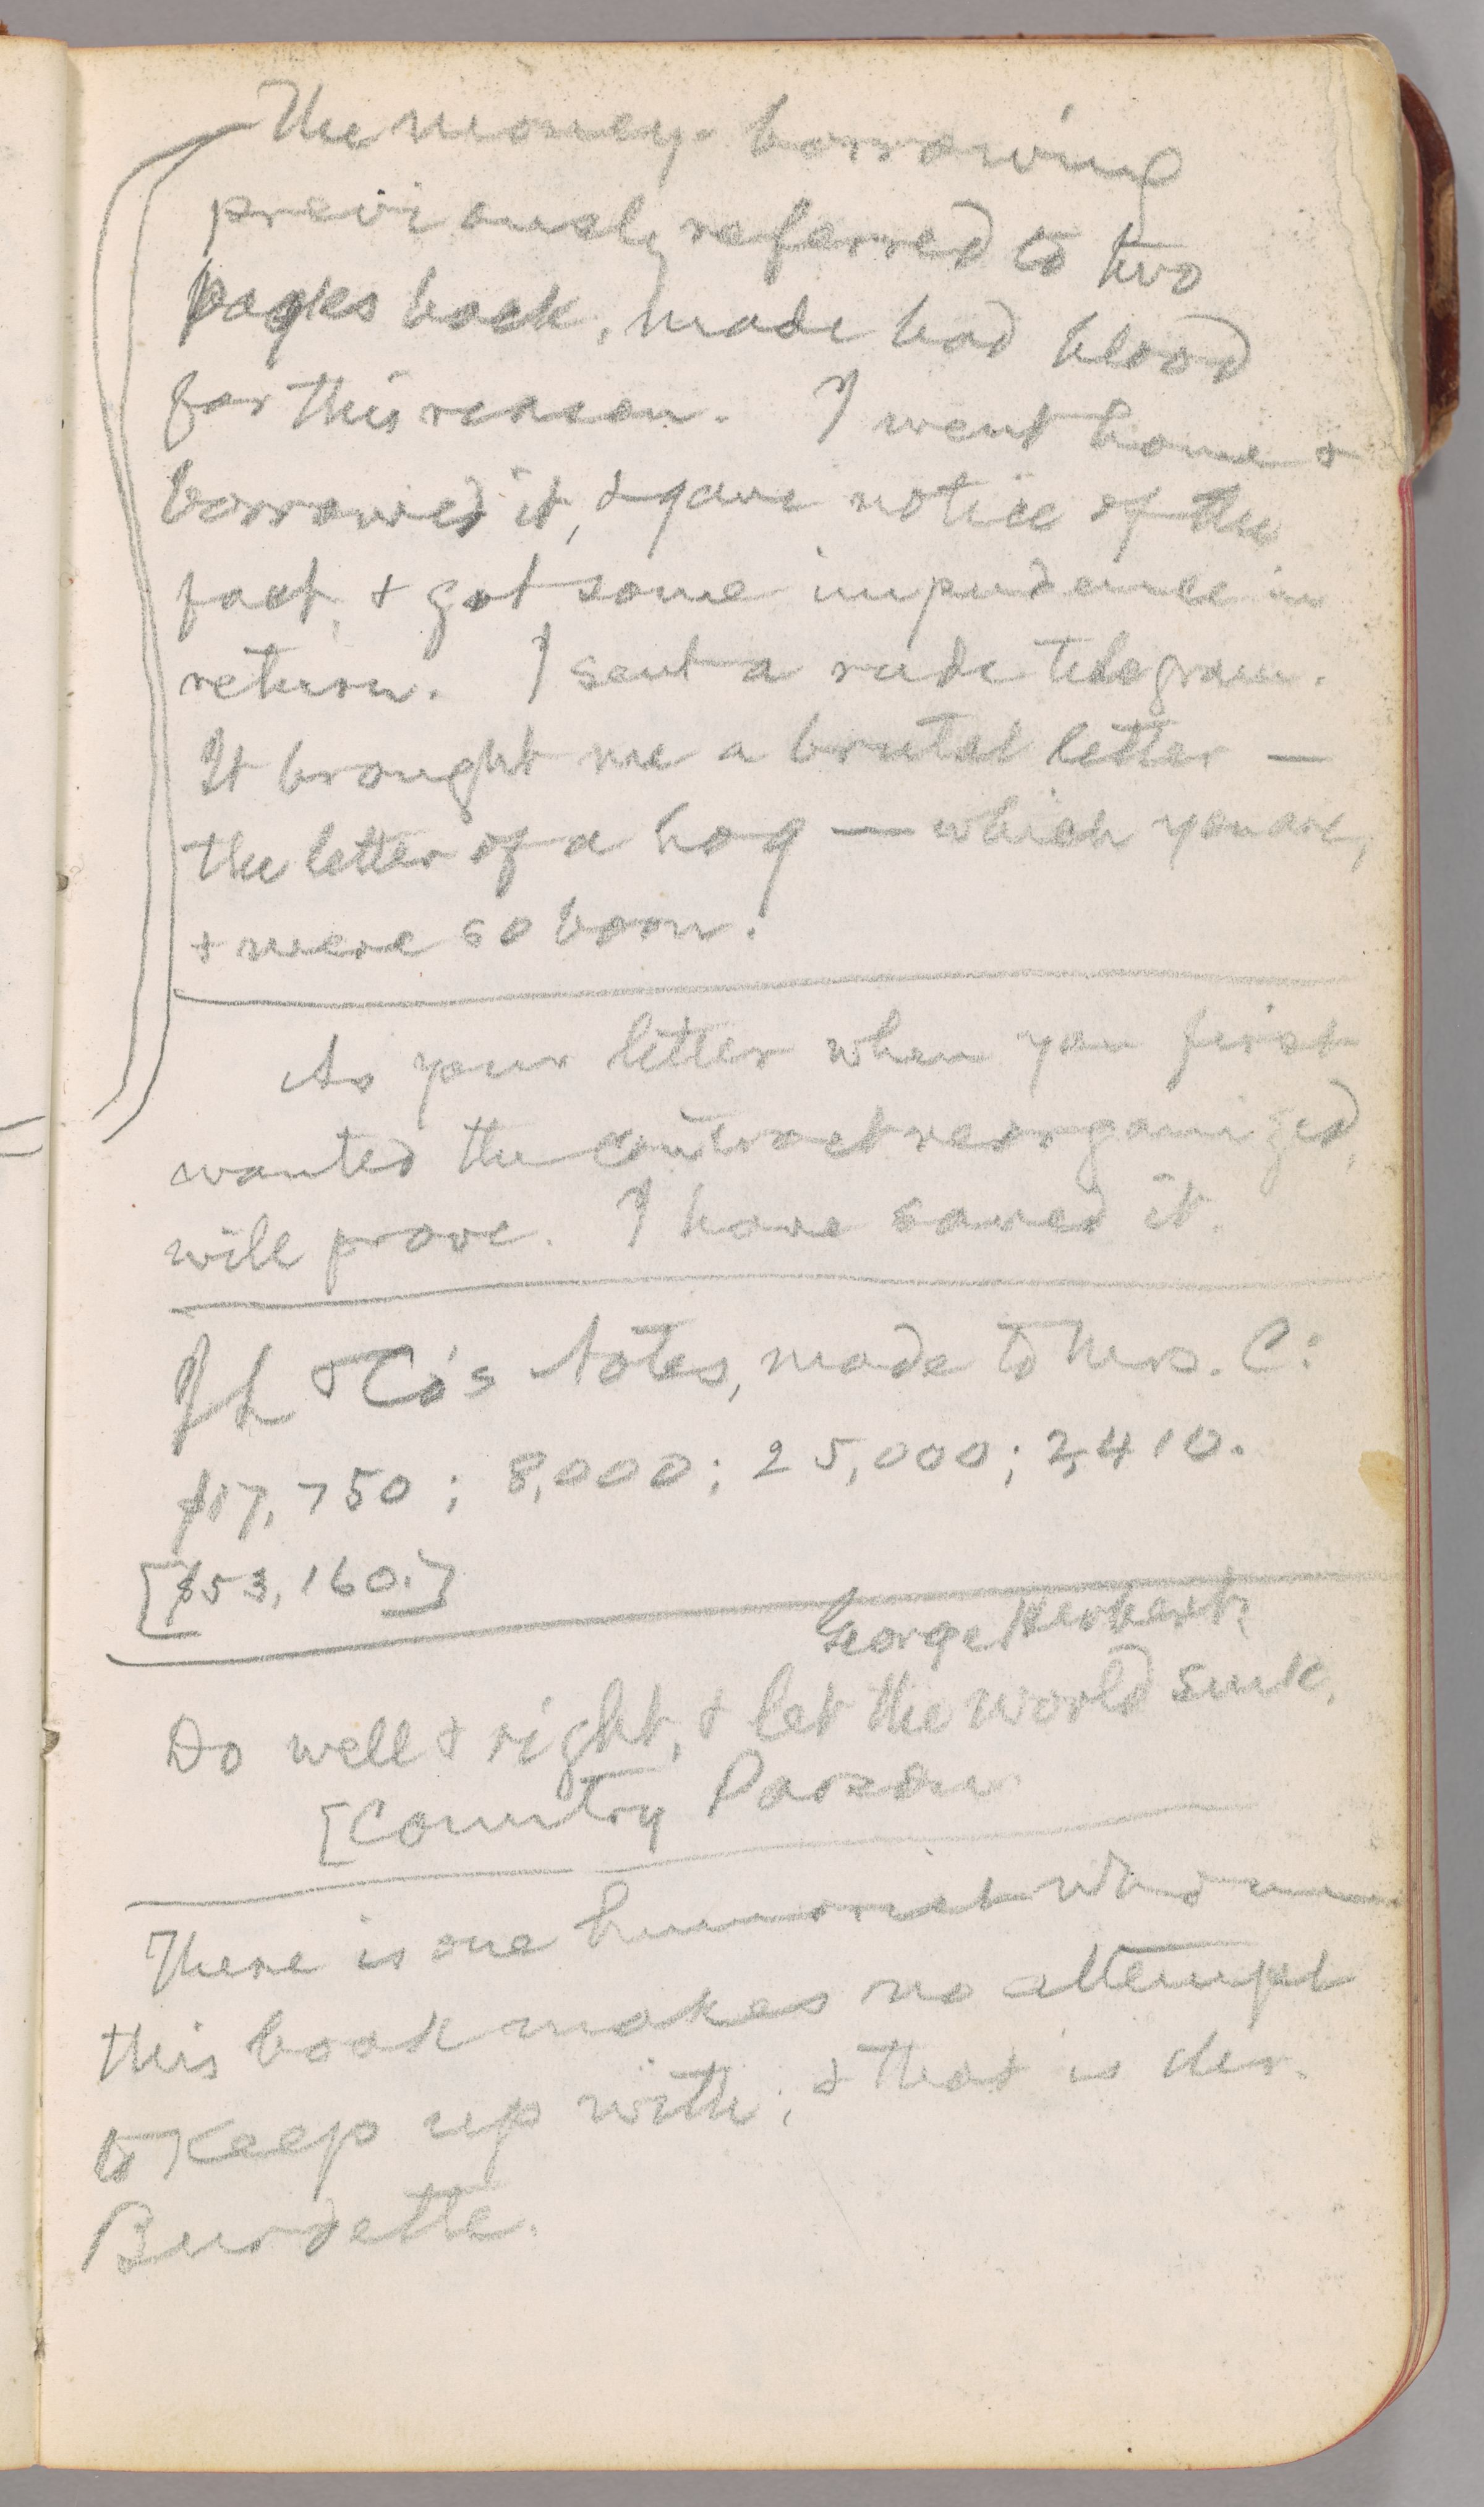 The money-borrowing
previously referred to two
pages back, made bad blood
for this reason. I went home &
borrowed it, & gave notice of the
fact, & got some impudence in
return. I sent a rude telegram.
It brought me a brutal letter —
the letter of a hog — which you are,
& were so born.
As your letter when you first
wanted the contract reorganized,
will prove. I have saved it.
& Co's Notes, made to Mrs. C:
$17,750; 8,000; 25,000; 2,410.
[$53,160.]
George Herbert.
Do well & right, & let the world sink.
[Country Parson
There is one humorist who
this book makes no attempt
to keep up with; & that is
Burdette.